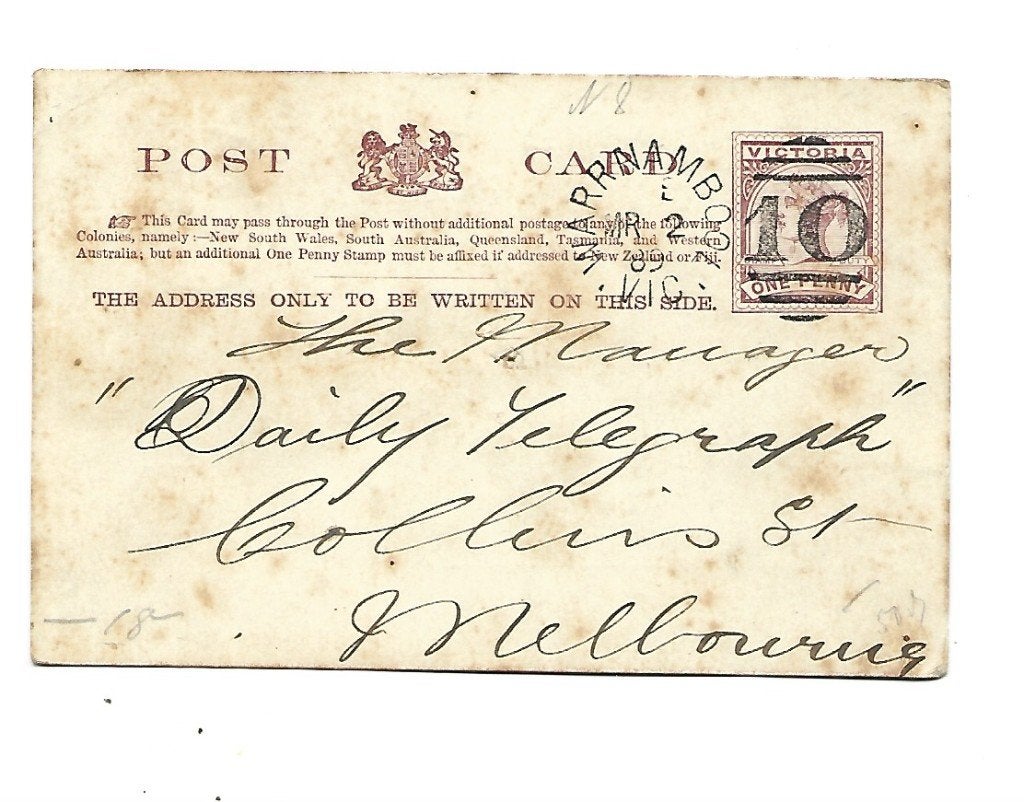 N 8
POST CARD
VICTORIA
This Card may pass through the Post without additional postage to any of the following
Colonies, namely:—New South Wales, South Australia, Queensland, Tasmania, and Western
Australia; but an additional One Penny Stamp must be affixed if addressed to New Zealand or Fiji.
WARRNAMBOOL
MR 2
VIC
10
ONE PENNY
THE ADDRESS ONLY TO BE WRITTEN ON THIS SIDE.
The Manager
"Daily Telegraph"
Collins St
Melbourne